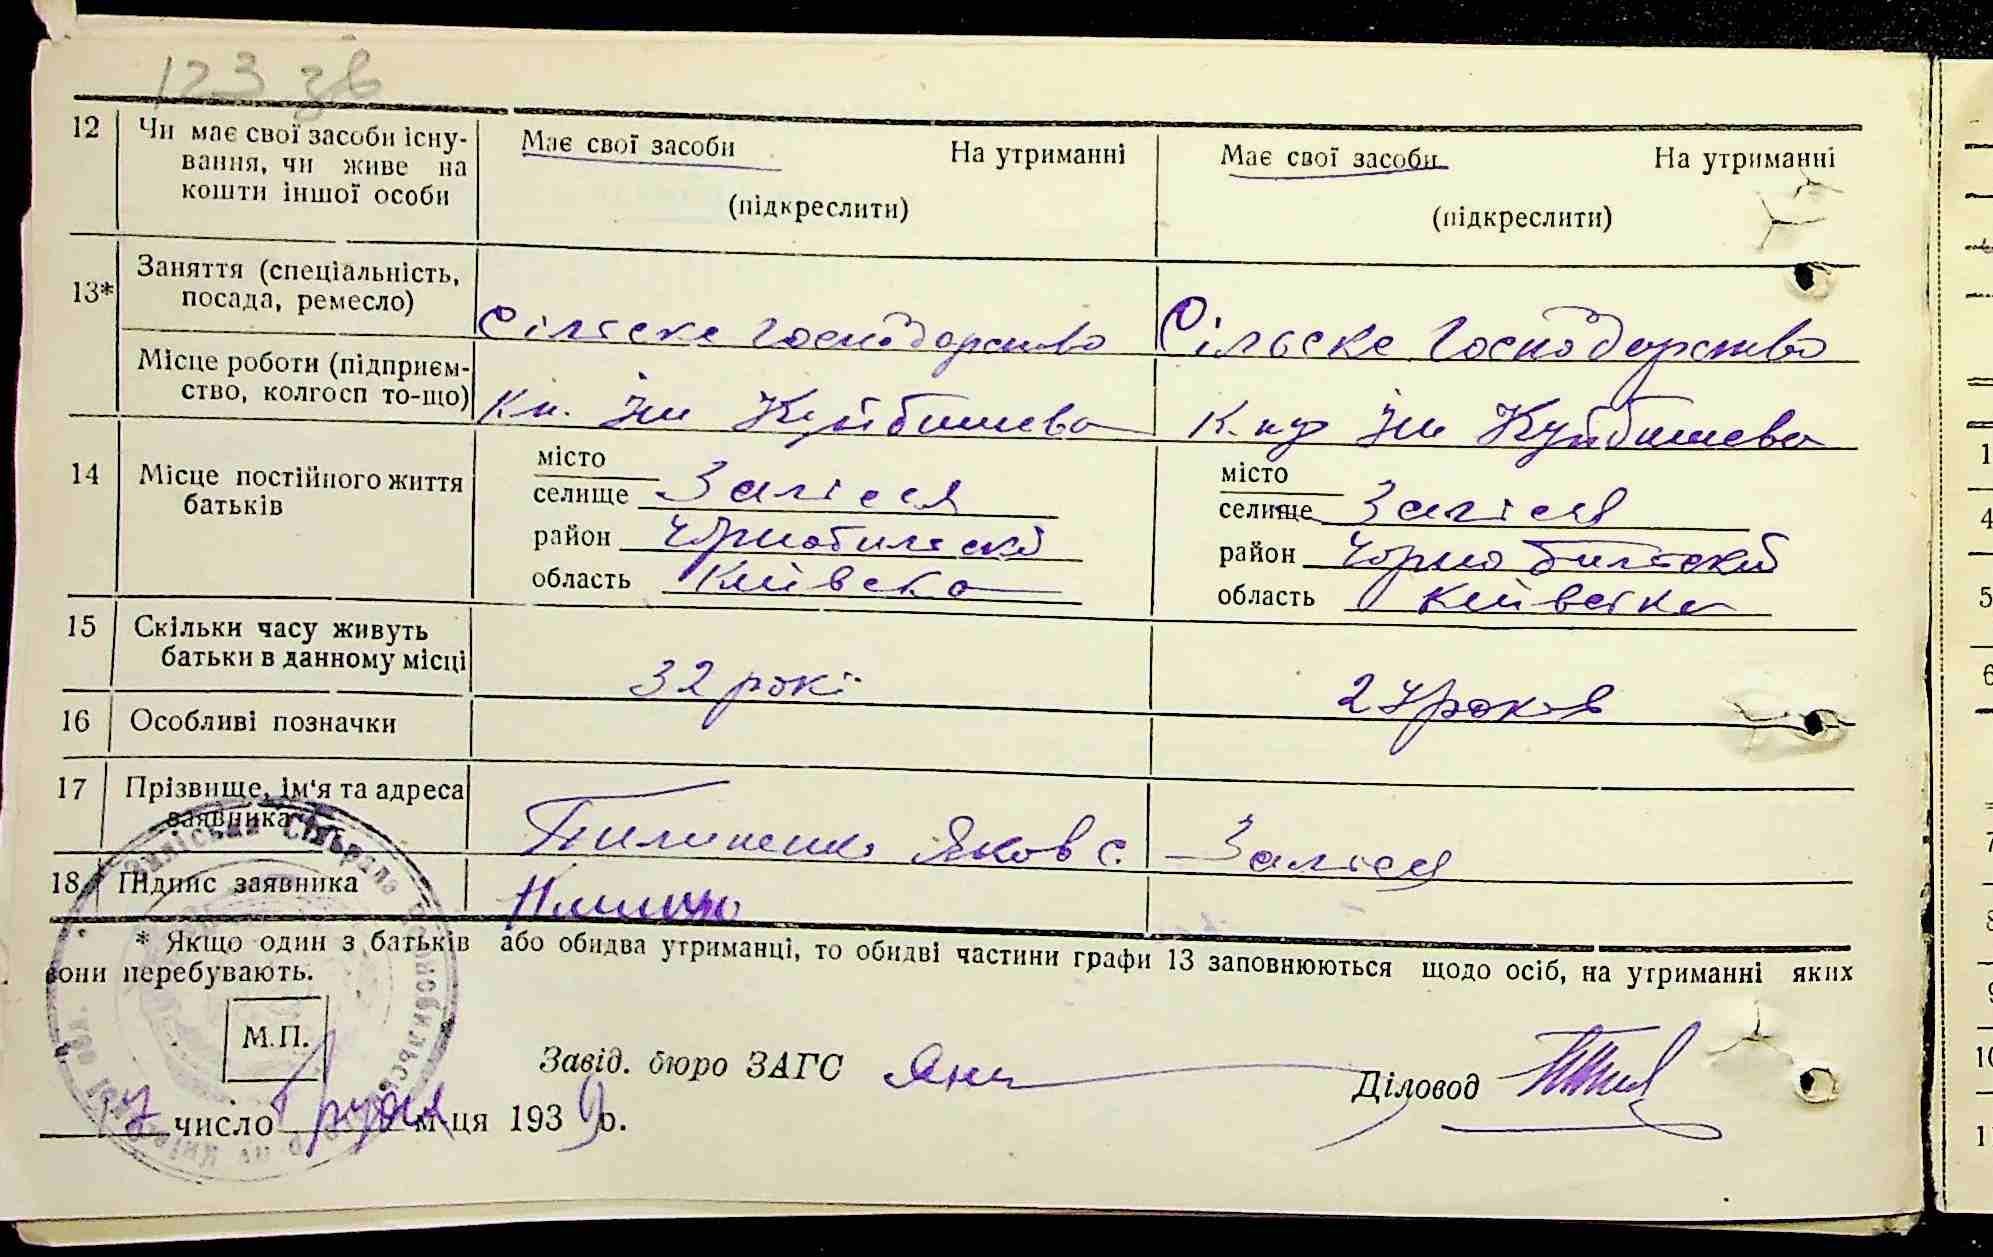 123 зв
12 Чи має свої засоби існу- Має свої засоби На утриманні Має свої засоби На утриманні
вання, чи живе на
кошти іншої особи (підкреслити) (підкреслити)
13* Заняття (спеціальність,
посада, ремесло) Сільске Господорство Сільске Господорство
Місце роботи (підприєм-
ство, колгосп то-що) Кн. Ім Куйбишева Ім Куйбишева
14 Місце постійного життя місто місто
батьків селище Залісся селище Залісся
район Чорнобильскі район Чорнобильский
область Київска область Київська
15 Скільки часу живуть
батьки в данному місці 32 рокі 24 роков
16 Особливі позначки
17 Прізвище, ім'я та адреса
заявника Пилипенко Яков с. Залісся
18 Підпис заявника
* Якщо один з батьків або обидва утриманці, то обидві частини графи 13 заповнюються щодо осіб, на утриманні яких
вони перебувають.
М.П.
Завід. бюро ЗАГС Діловод
17 число Грудня м-ця 1939 р.
12
4
5
6
7
8
9
10
11